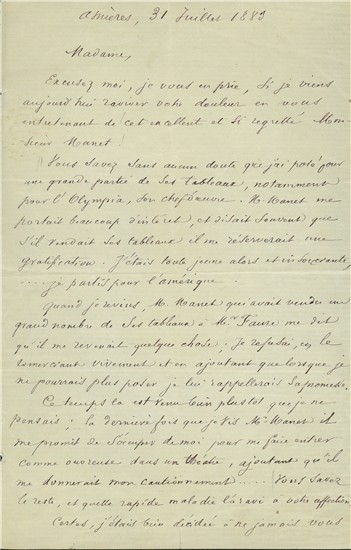 Asnières, 31 Juillet 1883
Madame,
Excusez moi, je vous en prie, si je viens
aujourd'hui raviver votre douleur en vous
entretenant de cet excellent et si regretté Mon-
sieur Manet
Vous savez sans aucun doute que j'ai posé pour
une grande partie de ses tableaux, notamment
pour l'Olympia, son chef d'œuvre. Mr Manet me
portait beaucoup d'intérêt, et disait souvent que
s'il vendait ses tableaux il me réserverait une
gratification. J'étais toute jeune alors et insouciante,
.... je partis pour l'amérique.
Quand je revins, Mr Manet qui avait vendu un
grand nombre de ses tableaux à Mr Faure me dit
qu'il me revenait quelque chose, Je refusai, en le
remerciant vivement et en ajoutant que lorsque je
ne pourrais plus poser je lui rappellerais sa promesse.
Ce temps là est venu bien plus tôt que je ne
pensais; la dernière fois que je vis Mr Manet il
me promit de s'occuper de moi pour me faire entrer
comme ouvreuse dans un théâtre, ajoutant qu'il
me donnerait mon cautionnement ..... Vous savez
le reste, et quelle rapide maladie l'a ravi à votre affection
Certes, j'étais bien décidée à ne jamais vous